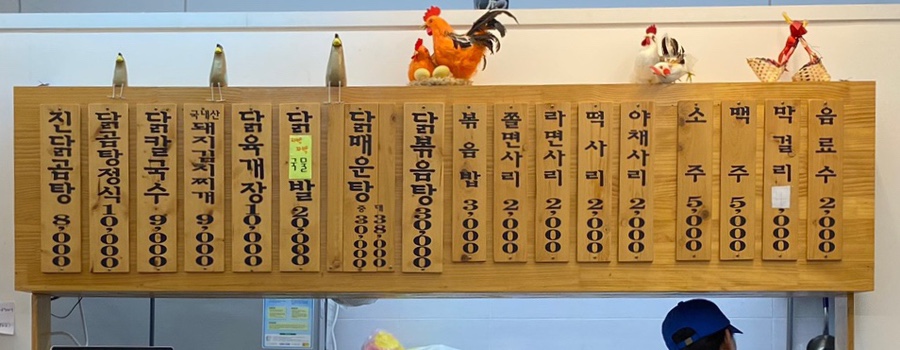 진닭곰탕 8,000
닭곰탕정식 10,000
닭칼국수 9,000
국내산
돼지김치찌개 9,000
닭육개장 10,000
닭 국물 발 20,000
닭매운탕
중 30,000
대 38,000
닭볶음탕 30,000
볶음밥 3,000
쫄면사리 2,000
라면사리 2,000
떡사리 2,000
야채사리 2,000
소주 5,000
맥주 5,000
막걸리 ,000
음료수 2,000